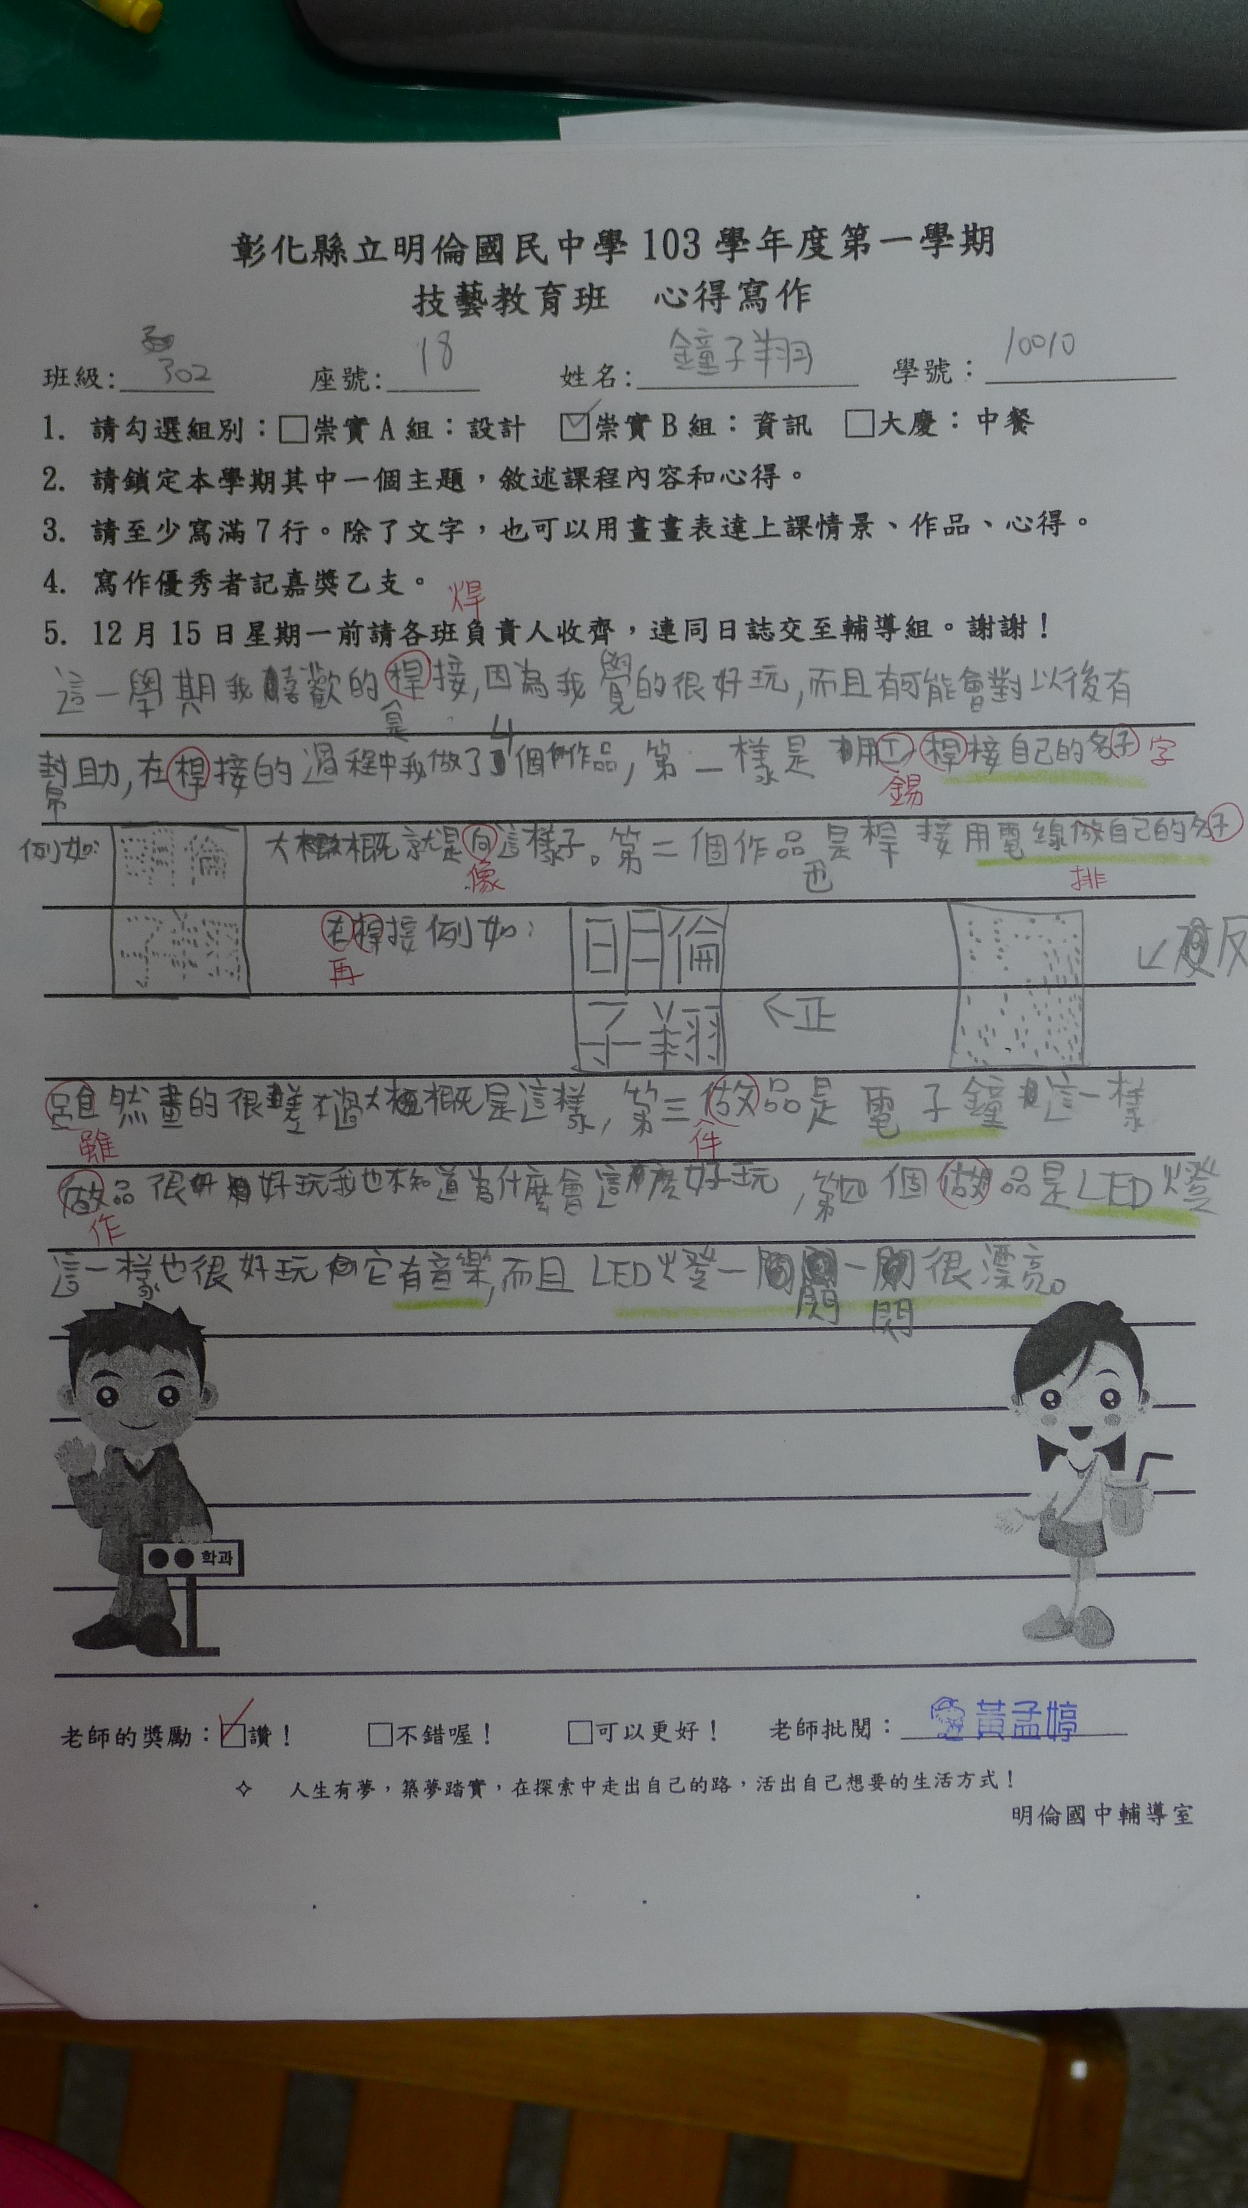 彰化縣立明倫國民中學 103 學年度第一學期
技藝教育班 心得寫作
班級: 302 座號: 18 姓名: 鐘子翔 學號: 10010
1. 請勾選組別：□崇實 A 組：設計 ☑崇實 B 組：資訊 □大慶：中餐
2. 請鎖定本學期其中一個主題，敘述課程內容和心得。
3. 請至少寫滿 7 行。除了文字，也可以用畫畫表達上課情景、作品、心得。
4. 寫作優秀者記嘉獎乙支。
焊
5. 12 月 15 日星期一前請各班負責人收齊，連同日誌交至輔導組。謝謝！
這一學期我喜歡的桿接,因為我覺的很好玩,而且有可能會對以後有
是 4
幫助,在桿接的過程中我做了個作品,第一樣是用 桿接自己的名子 字
錫
例如: 明倫 大概就是向這樣子。第二個作品是桿接用電線做自己的名子
像 也 排
子翔 在桿接例如: 明倫 ↙反
再
子翔 ←正
雖然畫的很差不過大概是這樣,第三做品是電子鐘這一樣
雖 件
做品很好玩我也不知道為什麼會這麼好玩,第四個做品是LED燈
作
這一樣也很好玩它有音樂,而且LED燈一閃一閃很漂亮。
閃 閃
학과
老師的獎勵：☑讚！ □不錯喔！ □可以更好！ 老師批閱：黃孟婷
✧ 人生有夢，築夢踏實，在探索中走出自己的路，活出自己想要的生活方式！
明倫國中輔導室